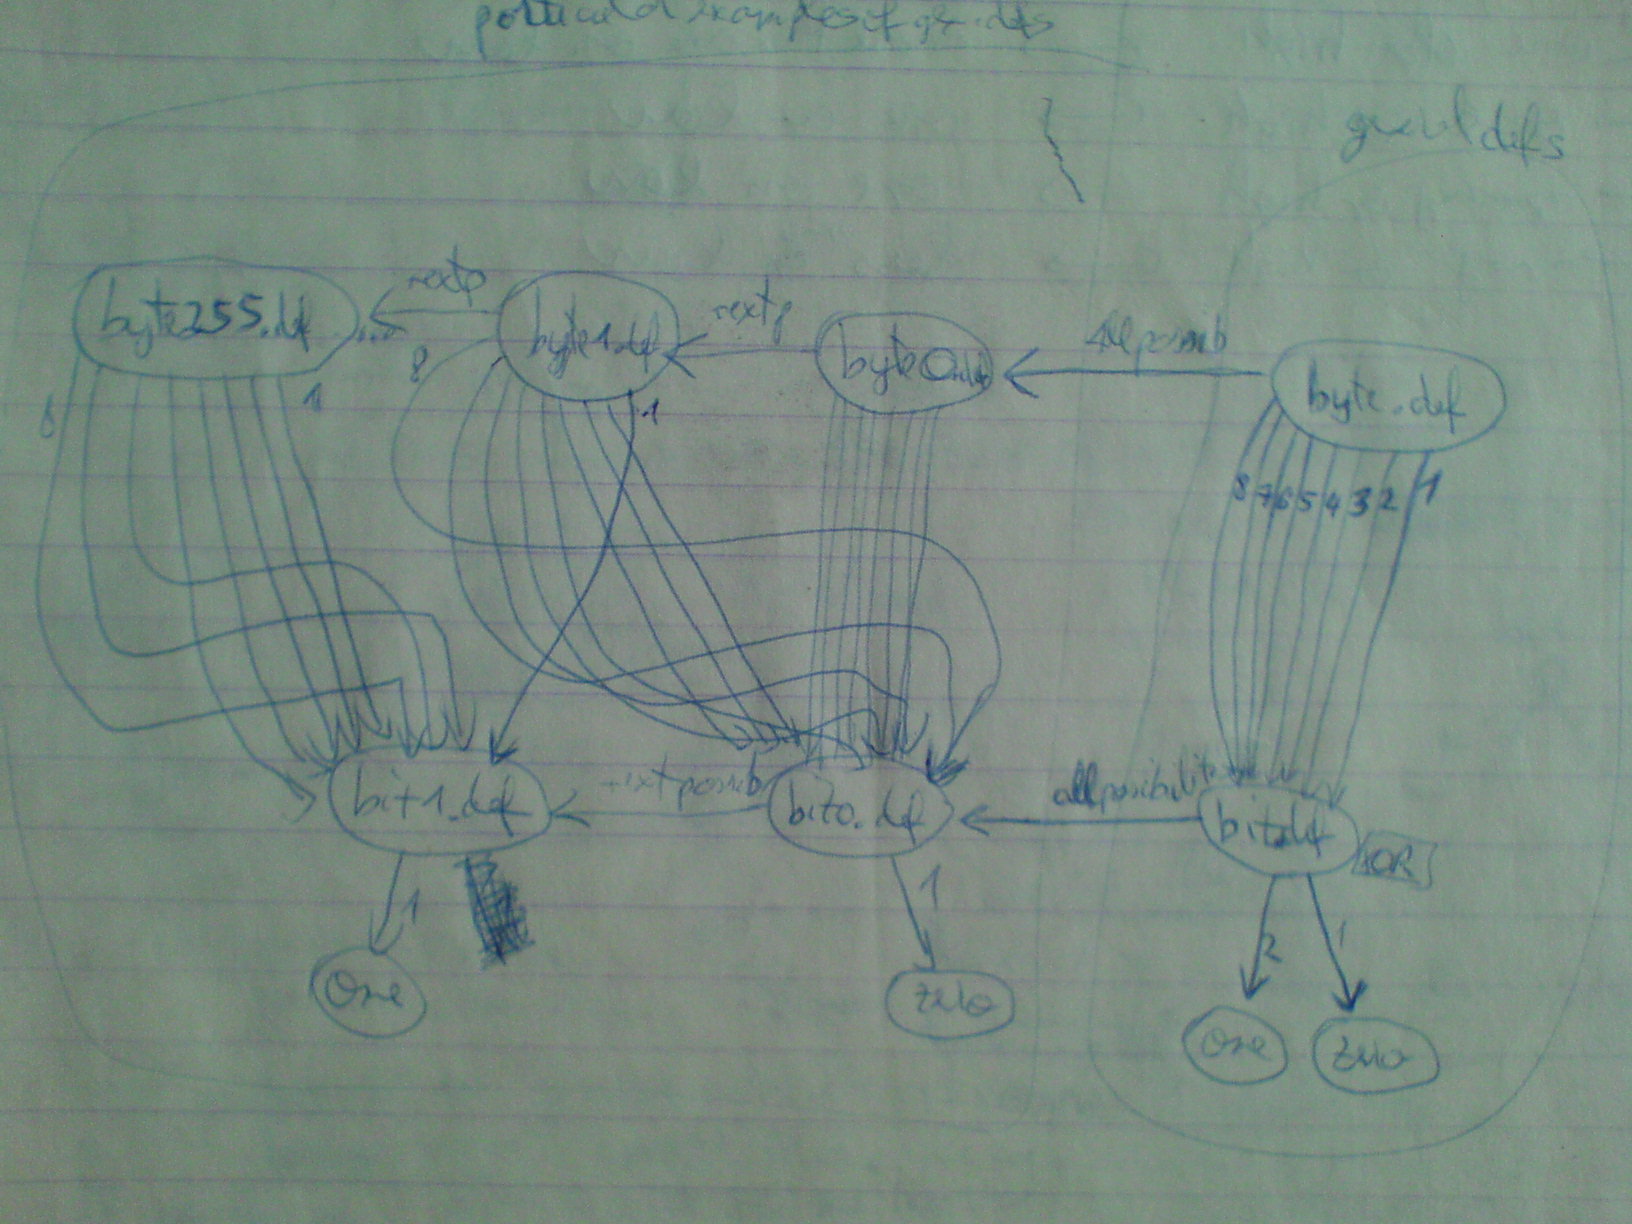 examples of
defs
byte255.def
nextp
byte1.def
nextp
byte0.def
Allposib
byte.def
8
1
8
1
8 7 6 5 4 3 2 1
bit1.def
next posib
bit0.def
allposibilit
bit.def
XOR
1
1
2
1
One
zero
One
zero